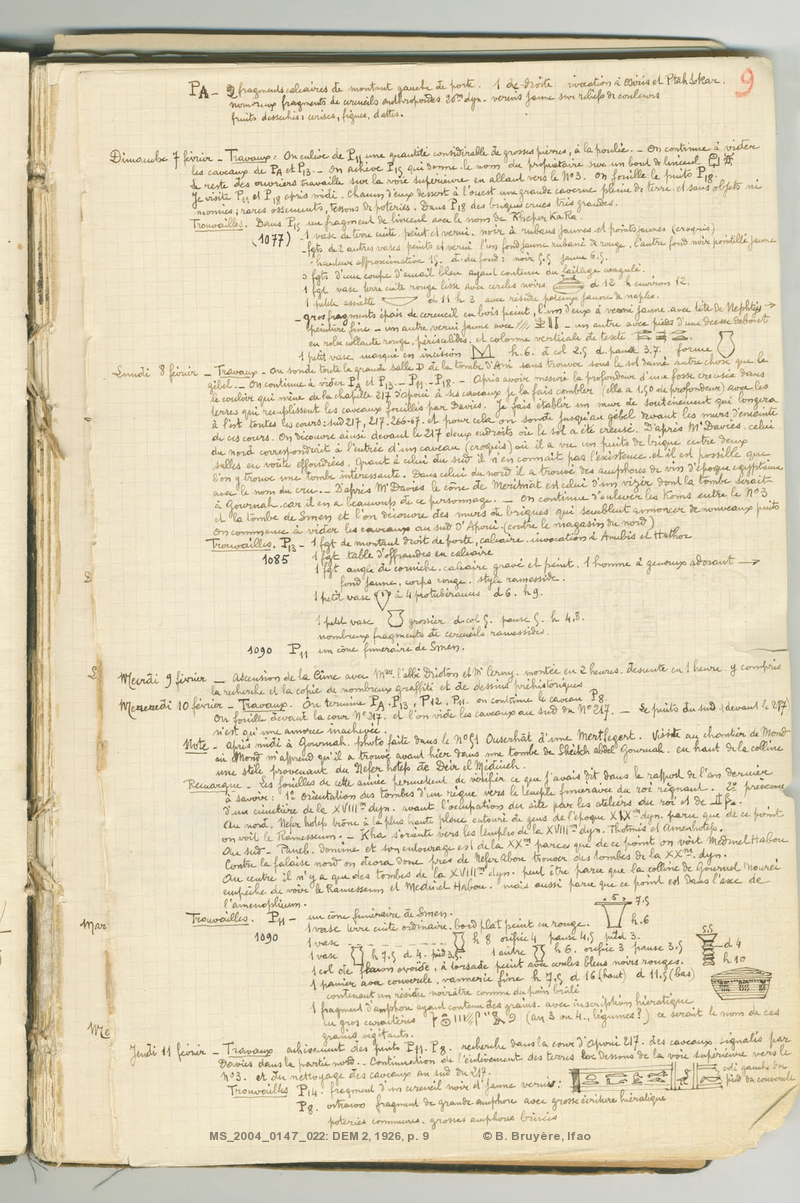 9
PA - 2 fragments calcaires de montant gauche de porte. 1 de droite invocation à Osiris et Ptah Sokar.
nombreux fragments de cercueils anthropoïdes 20me dyn. vernis jaune sur reliefs de couleurs
fruits desséchés : cerises, figues, dattes.
Dimanche 7 février - Travaux : On enlève de P11 une quantité considérable de grosses pierres, à la poulie. - On continue à vider
les caveaux de PA et P13. - On achève P15 qui donne le nom du propriétaire sur un bout de linceul
Le reste des ouvriers travaille sur la voie supérieure en allant vers le N°3. On fouille le puits P18.
Je visite P15 et P18 après midi. Chacun d'eux dessert à l'ouest une grande caverne pleine de terre, et sans objets ni
momies ; rares ossements, tessons de poteries. Dans P18 des briques crues très grandes.
Trouvailles. Dans P15 un fragment de linceul avec le nom de Kheper Ka Ra.
(1077) 1 vase de terre cuite peint et verni. noir à rubans jaunes et points jaunes (croquis)
- fgts de 2 autres vases peints et verni l'un fond jaune rubané de rouge, l'autre fond noir pointillé jaune
hauteur approximative 15. d. du fond : noir 5,5 jaune 6.5.
3 fgts d'une coupe d'émail bleu ayant contenu du laitage coagulé.
1 fgt vase terre cuite rouge lisse avec cercles noirs d 12 h environ 12.
1 petite assiette d 11 h 3. avec résidu poteux jaune de naples.
- gros fragments épais de cercueil en bois peint, l'un d'eux à verni jaune avec tête de Nephtys →
peinture fine - un autre verni jaune avec - un autre avec pieds d'une déesse debout
en robe collante rouge, périscélides, et colonne verticale de texte
1 petit vase marqué en incision h. 6. d col 2,5 d panse 3.7. forme
Lundi 8 février - Travaux - On sonde toute la grande salle D de la tombe d'Ari sans trouver sous le sol damé autre chose que le
gébel. - On continue à vider PA et P13. - P11 - P18. - Après avoir mesuré la profondeur d'une fosse creusée dans
le couloir qui mène de la chapelle 217 d'Apoui à ses caveaux je la fais combler (elle a 1,50 de profondeur) avec les
terres qui remplissent les caveaux fouillés par Davies. Je fais établir un mur de soutènement qui longera
à l'est toutes les cours : sud 217, 217. 266-67. et pour cela on sonde jusqu'au gébel devant les murs d'enceinte
de ces cours. On découvre ainsi devant le 217 deux endroits où le sol a été creusé. D'après Mr Davies celui
du nord correspondrait à l'entrée d'un caveau (croquis) où il a vu un puits de brique entre deux
salles en voûte effondrées. Quant à celui du sud il n'en connaît pas l'existence. et il est possible que
l'on y trouve une tombe intéressante. Dans celui du nord il a trouvé des amphores de vin d'époque égyptienne
avec le nom du cru. - D'après Mr Davies le cône de Merimaat est celui d'un vizir dont la tombe serait
à Gournah. car il en a beaucoup de ce personnage. - On continue d'enlever les Koms entre le N°3
et la tombe de Smen et l'on découvre des murs de briques qui semblent amorcer de nouveaux puits
On commence à vider les caveaux au sud d'Apoui (contre le magasin du nord)
Trouvailles. P13 - 1 fgt de montant droit de porte, calcaire. invocations à Anubis et Hathor
1085 1 fgt table d'offrandes en calcaire
1 fgt angle de corniche, calcaire gravé et peint. 1 homme à genoux adossant →
fond jaune, corps rouge. style ramesside.
1 petit vase à 4 protubérances d 6. h 9.
1 petit vase grossier d. col 5. panse 5. h 4,8.
nombreux fragments de cercueils ramessides.
1090 P11 un cône funéraire de Smen.
Mardi 9 février - Ascension de la Cîme avec Mrs l'abbé Drioton et Mr Cerny. montée en 2 heures. descente en 1 heure. y compris
la recherche et la copie de nombreux graffiti et de dessins préhistoriques
Mercredi 10 février - Travaux. On termine PA. P13, P12, P11. on continue le caveau P8.
On fouille devant la cour N°217. et l'on vide les caveaux au sud du N°217. - Le puits du sud (devant le 217)
n'est qu'une amorce inachevée.
Note - après midi à Gournah. photo faite dans le N°51 Ouserhât d'une Mertseger. Visite au chantier de Mond
où Mond m'apprend qu'il a trouvé avant hier dans une tombe de Sheikh abdel Gournah. en haut de la colline
une stèle provenant du Nefer hotep de Deir el Médineh.
Remarque - Les fouilles de cette année permettent de vérifier ce que j'avais dit dans le rapport de l'an dernier
à savoir : 1° Orientation des tombes d'un règne vers le temple funéraire du roi régnant. 2° présence
d'un cimetière de la XVIIIme dyn. avant l'occupation du site par les ateliers du roi et de
Au nord, Nefer hotep trône à la plus haute place entouré de gens de l'époque XIXme dyn. parce que de ce point
on voit le Ramesseum. - Kha s'oriente vers les temples de la XVIIIme dyn. Thotmès et Amenhotep.
Au sud - Paneb. domine et son entourage est de la XXme parce que de ce point on voit Medinet Habou
Contre la falaise nord on devra donc près de Nefer Abou trouver des tombes de la XXme dyn.
Au centre il n'y a que des tombes de la XVIIIme dyn. peut être parce que la colline de Gournet Mourei
empêche de voir le Ramesseum et Medinet Habou. mais aussi parce que ce point est dans l'axe de
l'amenophium.
Trouvailles. P11 - un cône funéraire de Smen.
1090 1 vase terre cuite ordinaire, bord plat peint en rouge. 5 7.5 h.6
1 vase h 8 orifice 4 panse 4,5 pied 3.
1 vase h 7,5 d 4. pied 3,5 1 autre h 6. orifice 3 panse 3.5
5.5 d 4 h 10
1 col de flacon ovoïde, à torsade peint avec cercles bleus noirs rouges.
1 panier avec couvercle, vannerie fine h 7,5 d 16 (haut) d 11,5 (bas)
contenant un résidu noirâtre comme du pain brûlé
1 fragment d'amphore ayant contenu des grains. avec inscription hiératique
en gros caractères (an 3 ou 4, légumes ?) ce serait le nom de ces
grains végétants.
Jeudi 11 février - Travaux achèvement des puits P11. P8. recherche dans la cour d'Apoui 217. des caveaux signalés par
Davies dans la partie nord. - Continuation de l'enlèvement des terres au dessous de la voie supérieure vers le
N°3. et du nettoyage des caveaux au sud du 217.
Trouvailles P14. fragment d'un cercueil noir et jaune vernis : côté gauche du pied du couvercle
P8. ostracon fragment de grande amphore avec grosse écriture hiératique
poteries communes. grosses amphores brisées
Mar
Me
MS_2004_0147_022: DEM 2, 1926, p. 9 © B. Bruyère, Ifao